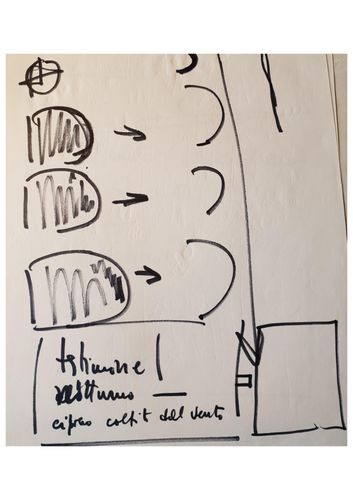 testimone
notturno —
cipresso colpito dal vento